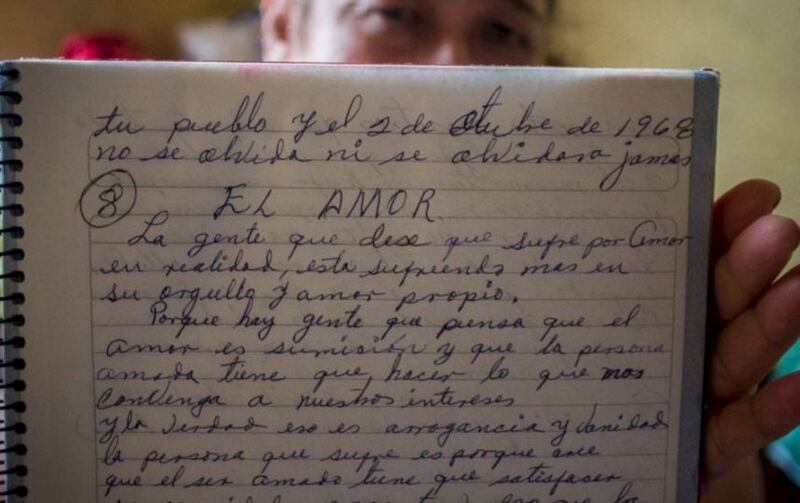 tu pueblo y el 2 de Otubre de 1968
no se olvida ni se olvidara jamas
8 EL AMOR
La gente que dese que sufre por Amor
en realidad, esta sufriendo mas en
su orgullo y amor propio.
Porque hay gente que piensa que el
amor es sumición y que la persona
amada tiene que hacer lo que mas
convenga a nuestros intereses
y la verdad eso es arrogancia y vanidad
la persona que sufre es porque cree
que el ser amado tiene que satisfacer